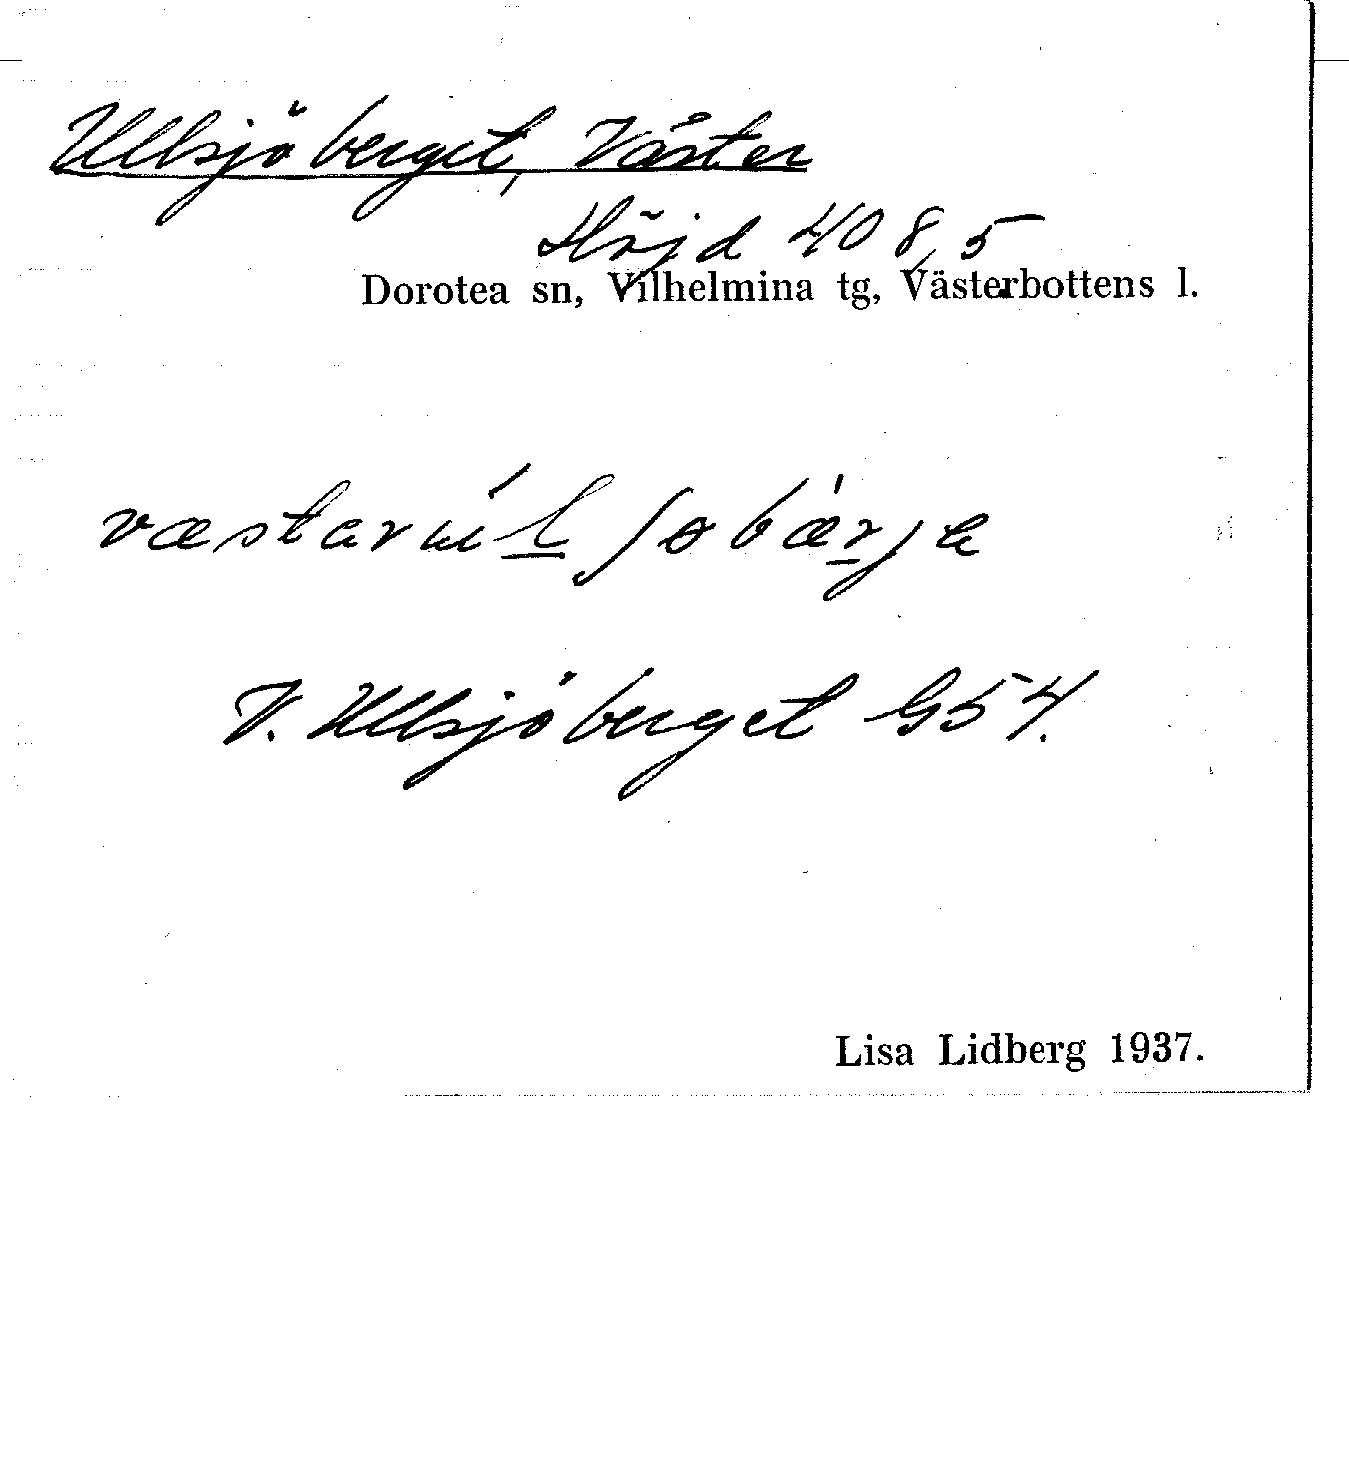 Ullsjöberget, Väster
Höjd 408,5
Dorotea sn, Vilhelmina tg, Västerbottens l.
væstarúl̲ʃobær̲ja
V. Ullsjöberget G54.
Lisa Lidberg 1937.